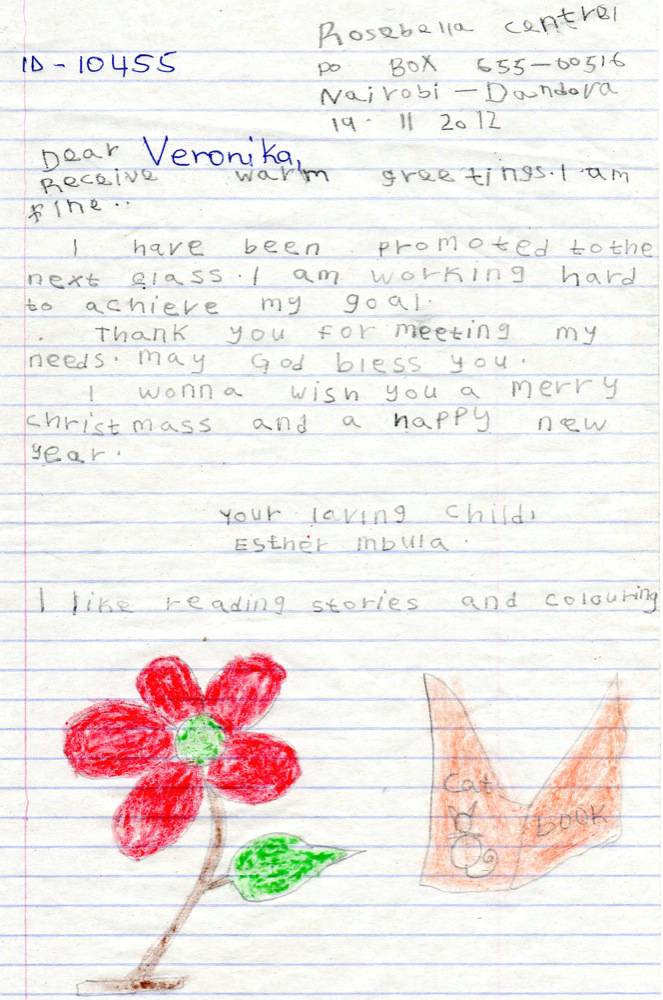 Rosebella centrel
ID - 10455
po BOX 655-00516
Nairobi - Dandora
19. 11 2012
Dear Veronika,
Receive warm greetings. I am
fine..
I have been promoted to the
next class. I am working hard
to achieve my goal.
. Thank you for meeting my
needs. may God bless you.
I wonna wish you a merry
christmass and a happy new
year.
your loving child,
Esther mbula.
I like reading stories and colouring
cat
book